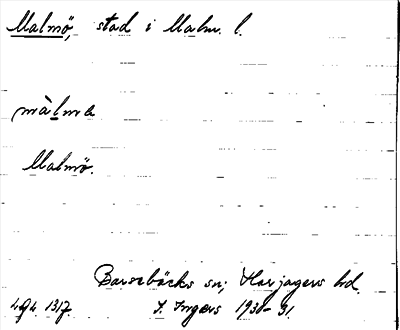 Malmö, stad i Malm. l.
màlmə
Malmö.
Barsebäcks sn; Harjagers hd.
I. Ingers 1930-31